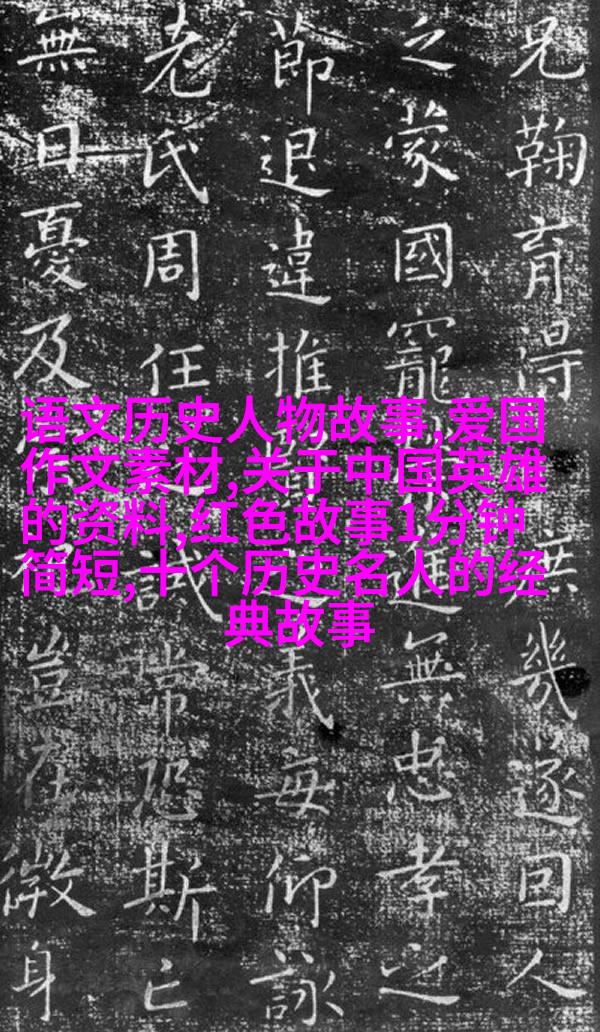 兄鞠育得庶幾遂回人
之蒙國寵進無忠孝之
節退違推義每仰詠
老氏周任誡常恐斯亡
無日憂及豈在微身
语文历史人物故事,爱国
作文素材,关于中国英雄
的资料,红色故事1分钟
简短,十个历史名人的经
典故事